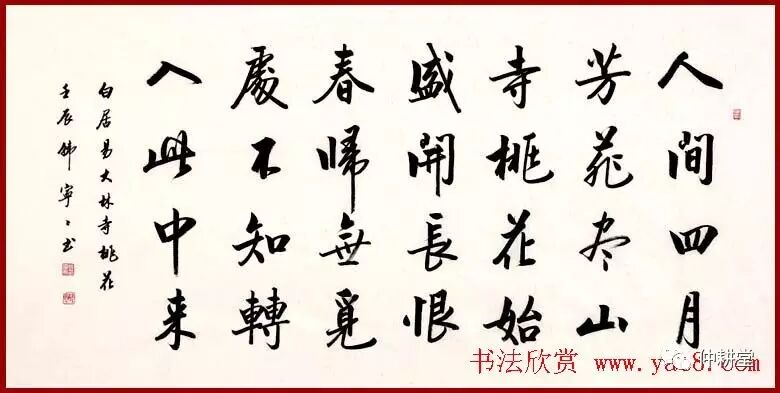 人間四月
芳菲尽山
寺桃花始
盛開長恨
春帰無覓
處不知轉
入此中来
白居易大林寺桃花
壬辰韩寧〻书
书法欣赏
仲耕堂